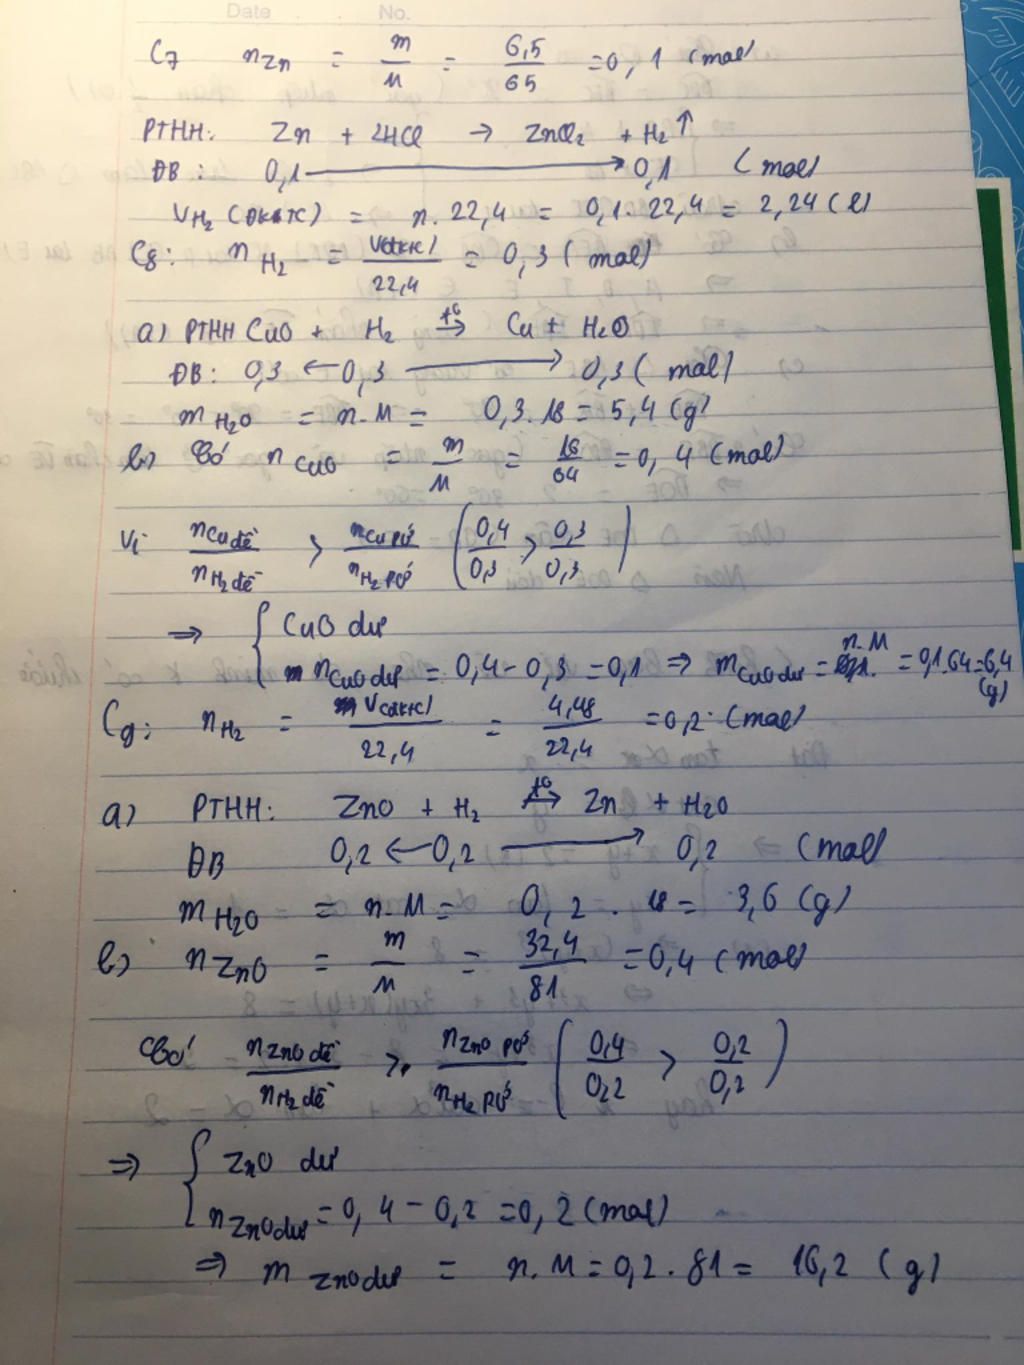 Date No.
C7 nZn = m/M = 6,5/65 = 0,1 (mol)
PTHH: Zn + 2HCl → ZnCl₂ + H₂↑
ĐB: 0,1 → 0,1 (mol)
VH₂ (ĐKTC) = n. 22,4 = 0,1. 22,4 = 2,24 (l)
C8: nH₂ = V(ĐKTC)/22,4 = 0,3 (mol)
a) PTHH CuO + H₂ →(t⁰) Cu + H₂O
ĐB: 0,3 ← 0,3 → 0,3 (mol)
mH₂O = n.M = 0,3.18 = 5,4 (g)
b) Có nCuO = m/M = 16/64 = 0,4 (mol)
Vì nCu đề/nH₂ đề > nCu PỨ/nH₂ PỨ (0,4/0,3 > 0,3/0,3)
⇒ { CuO dư
nCuO dư = 0,4 - 0,3 = 0,1 ⇒ mCuO dư = n.M = 0,1.64 = 6,4 (g)
C9: nH₂ = V(ĐKTC)/22,4 = 4,48/22,4 = 0,2 (mol)
a) PTHH: ZnO + H₂ →(t⁰) Zn + H₂O
ĐB 0,2 ← 0,2 → 0,2 (mol)
mH₂O = n.M = 0,2 . 18 = 3,6 (g)
b) nZnO = m/M = 32,4/81 = 0,4 (mol)
Có nZnO đề/nH₂ đề > nZnO PỨ/nH₂ PỨ (0,4/0,2 > 0,2/0,2)
⇒ { ZnO dư
nZnO dư = 0,4 - 0,2 = 0,2 (mol)
⇒ m ZnO dư = n.M = 0,2.81 = 16,2 (g)